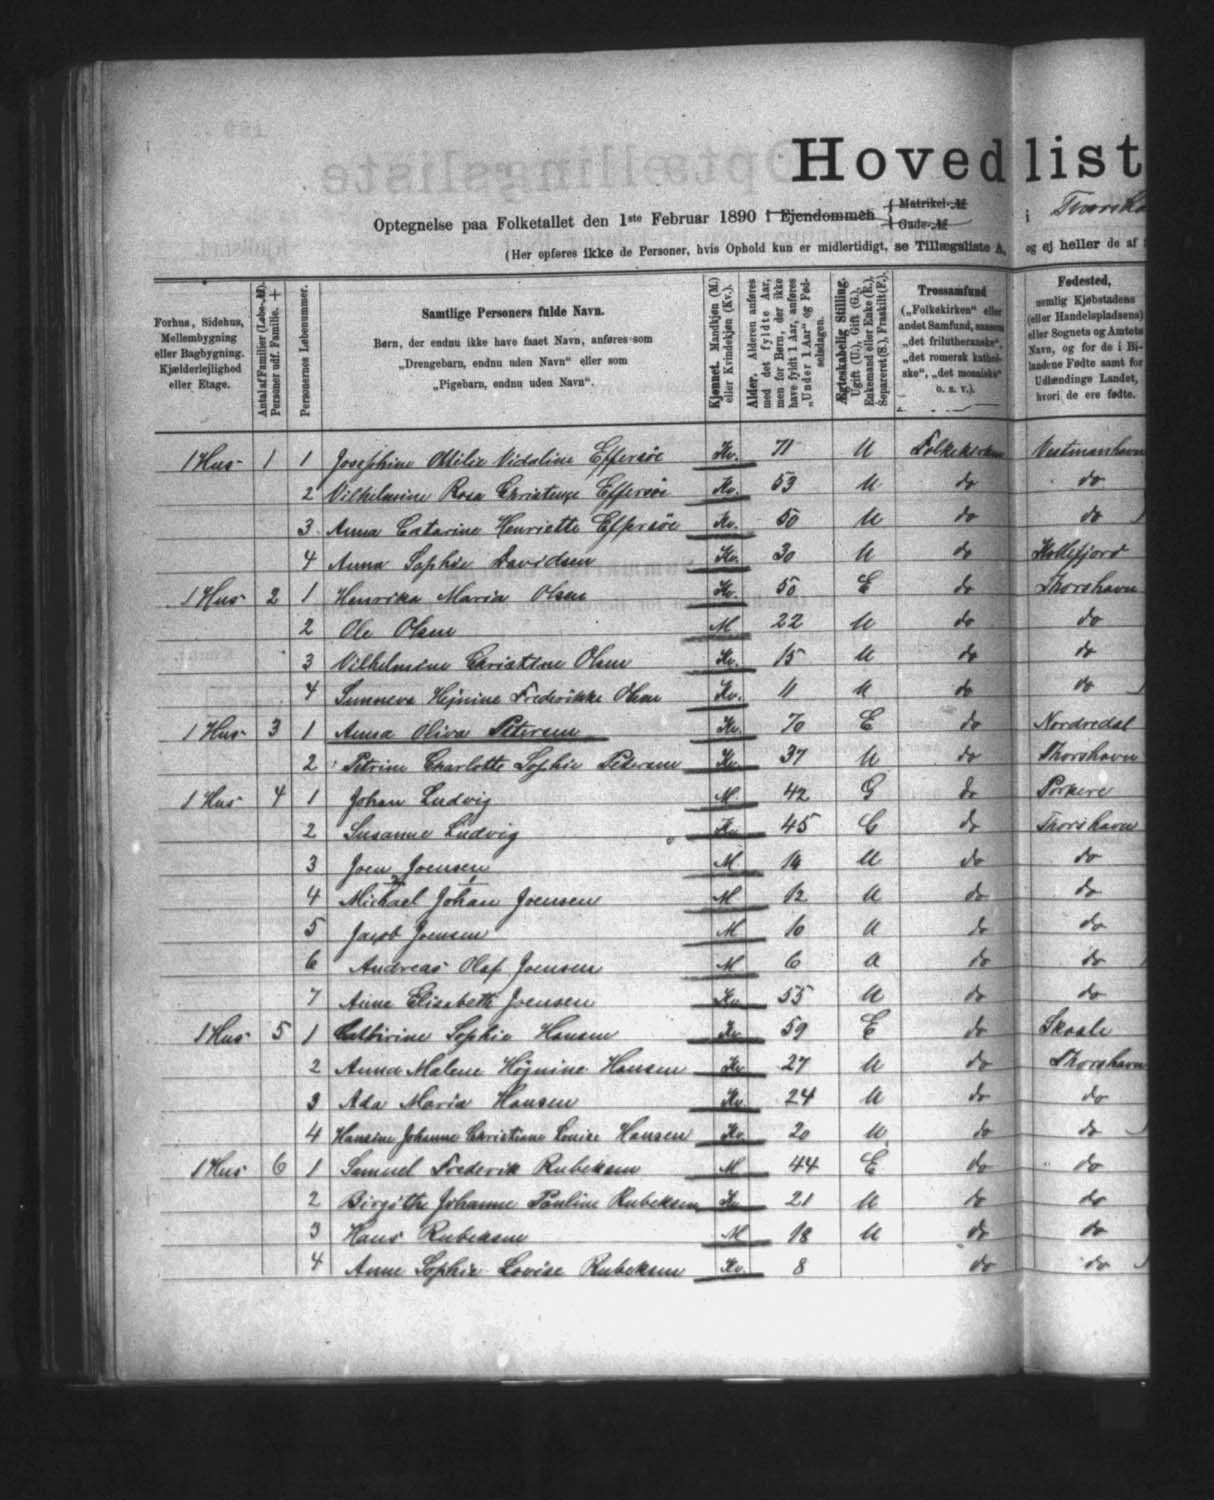 Hovedlist
Optegnelse paa Folketallet den 1ste Februar 1890 i Ejendommen { Matrikel-№ i
{ Gade-№
(Her opføres ikke de Personer, hvis Ophold kun er midlertidigt, se Tillægsliste A, og ej heller de af
Forhus, Sidehus, Mellembygning eller Bagbygning. Kjælderlejlighed eller Etage.
Antal af Familier (Løbe-№). Personer udf. Familie. +
Personernes Løbenummer.
Samtlige Personers fulde Navn.
Børn, der endnu ikke have faaet Navn, anføres som
„Drengebarn, endnu uden Navn“ eller som
„Pigebarn, endnu uden Navn“.
Kjønnet. Mandkjøn (M.) eller Kvindekjøn (Kv.).
Alder. Alderen anføres med det fyldte Aar, men for Børn, der ikke have fyldt 1 Aar, anføres „Under 1 Aar“ og Fødselsdagen.
Ægteskabelig Stilling. Ugift (U.), Gift (G.), Enkemand eller Enke (E.), Separeret (S.), Fraskilt (F.).
Trossamfund
(„Folkekirken“ eller
andet Samfund, saasom
„det frilutheranske“,
„det romersk katholske“, „det mosaiske“
o. s. v.).
Fødested,
nemlig Kjøbstadens
(eller Handelspladsens)
eller Sognets og Amtets
Navn, og for de i Bilandene Fødte samt for
Udlændinge Landet,
hvori de ere fødte.
1 Hus 1 1 Josephine Ottilie Vidaline Effersøe Kv. 71 U Folkekirken Vestmanhavn
2 Vilhelmine Rosa Christence Effersøe Kv. 53 U do do
3 Anna Catarine Henriette Effersøe Kv. 50 U do do
4 Anna Sophie Davidsen Kv. 30 U do Kollefjord
1 Hus 2 1 Henrika Maria Olsen Kv. 50 E do Thorshavn
2 Ole Olsen M 22 U do do
3 Vilhelmine Christine Olsen Kv. 15 U do do
4 Sunneva Hejnine Frederikke Olsen Kv. 11 U do do
1 Hus 3 1 Anna Oliva Petersen Kv. 70 E do Nordredal
2 Petrine Charlotte Sophie Petersen Kv. 37 U do Thorshavn
1 Hus 4 1 Johan Ludvig M. 42 G do Porkere
2 Susanne Ludvig Kv 45 G do Thorshavn
3 Joen Joensen M. 14 U do do
4 Michael Johan Joensen M 12 U do do
5 Jacob Joensen M 10 U do do
6 Andreas Olaf Joensen M 6 U do do
7 Anne Elisabeth Joensen Kv 55 U do do
1 Hus 5 1 Cathrine Sophie Hansen Kv 59 E do Skaale
2 Anna Malene Højnine Hansen Kv 27 U do Thorshavn
3 Ada Maria Hansen Kv 24 U do do
4 Hansine Johanne Christiane Louise Hansen Kv 20 U do do
1 Hus 6 1 Samuel Frederik Rubeksen M 44 E do do
2 Birgithe Johanne Pauline Rubeksen Kv 21 U do do
3 Hans Rubeksen M 18 U do do
4 Anne Sophie Lovise Rubeksen Kv. 8 do do